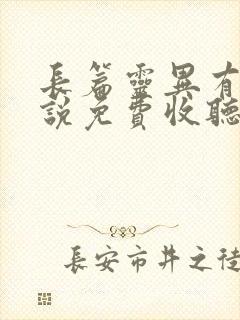 長篇靈異有
說免費收聽
長安市井之徒